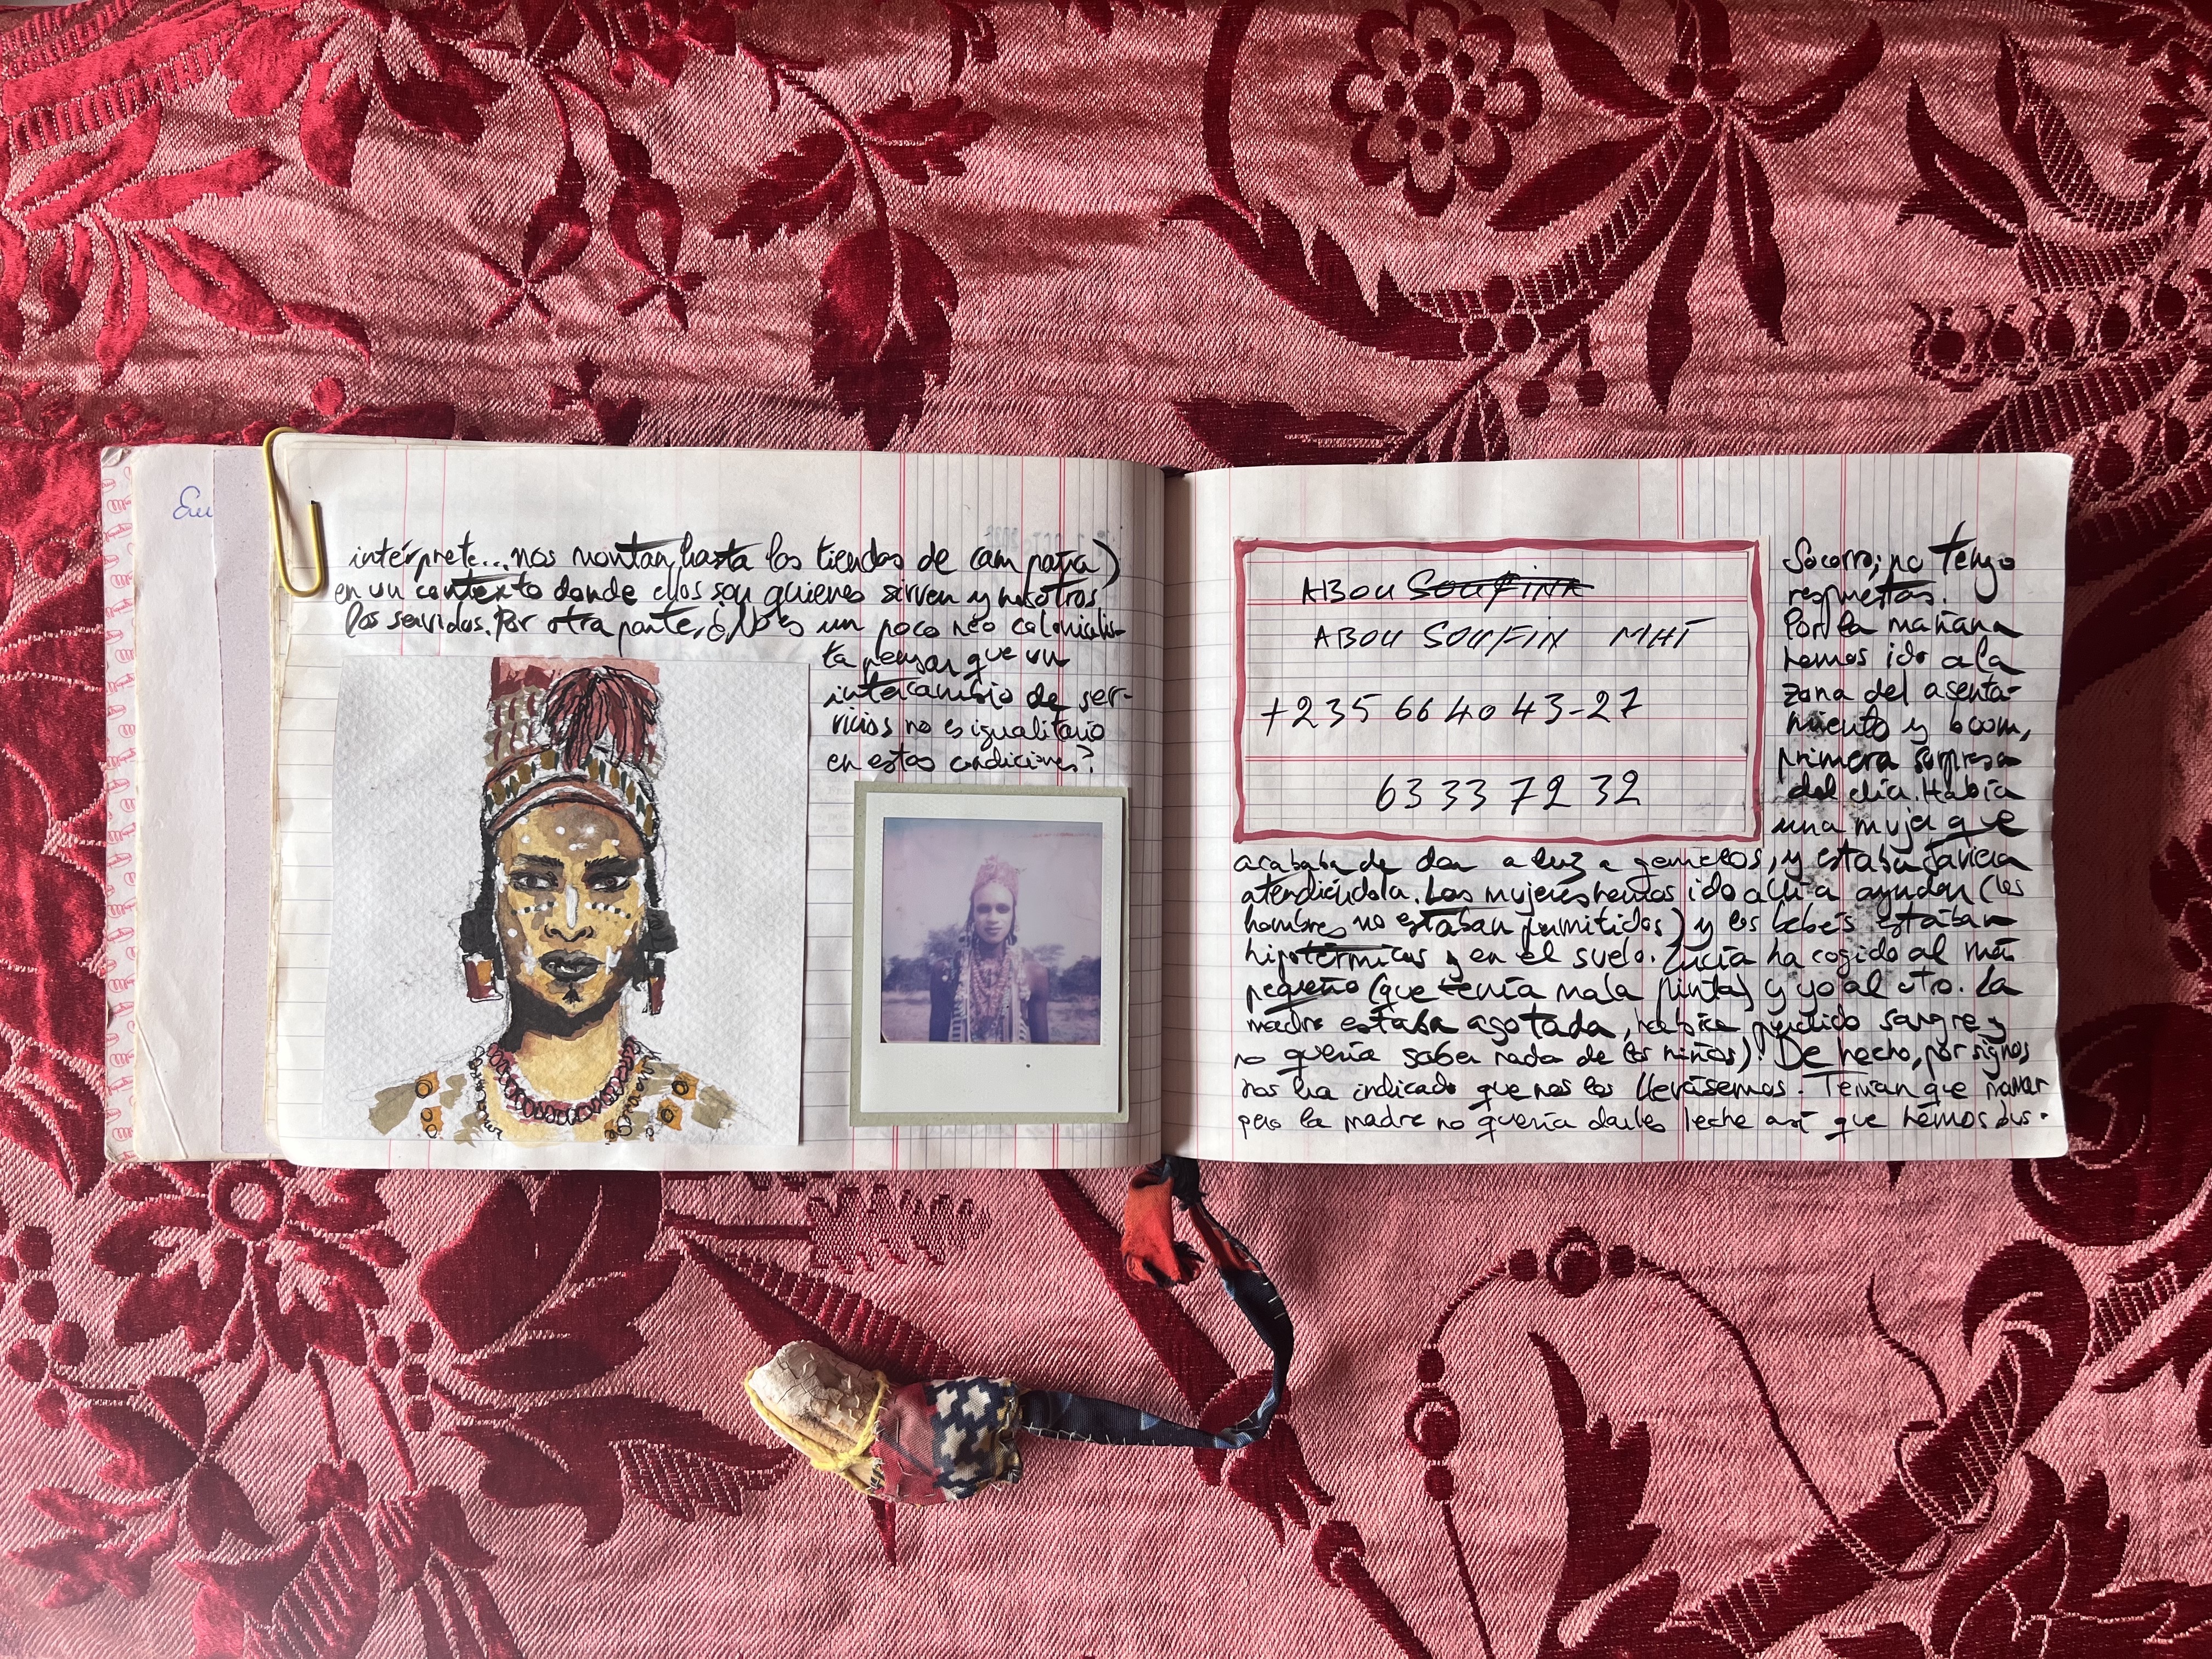 Eu
intérprete... nos montan hasta las tiendas de campaña)
en un contexto donde ellos son quienes sirven y nosotros
los servidos. Por otra parte, ¿No es un poco neo colonialis-
ta pensar que un
intercambio de ser-
vicios no es igualitario
en estas condiciones?
ABOU SOUFINA
ABOU SOUFIN MHT
+235 66 40 43-27
63 33 72 32
Socorro; no tengo
respuestas.
Por la mañana
hemos ido a la
zona del asenta-
miento y boom,
primera sorpresa
del día. Había
una mujer que
acababa de dar a luz a gemelos, y estaba Javiera
atendiéndola. Las mujeres hemos ido allí a ayudar (los
hombres no estaban permitidos) y los bebés estaban
hipotérmicos y en el suelo. Lucía ha cogido al más
pequeño (que tenía mala pinta) y yo al otro. La
madre estaba agotada, había perdido sangre y
no quería saber nada de los niños). De hecho, por signos
nos ha indicado que nos los llevásemos. Tenían que mamar
pero la madre no quería darles leche así que hemos bus-